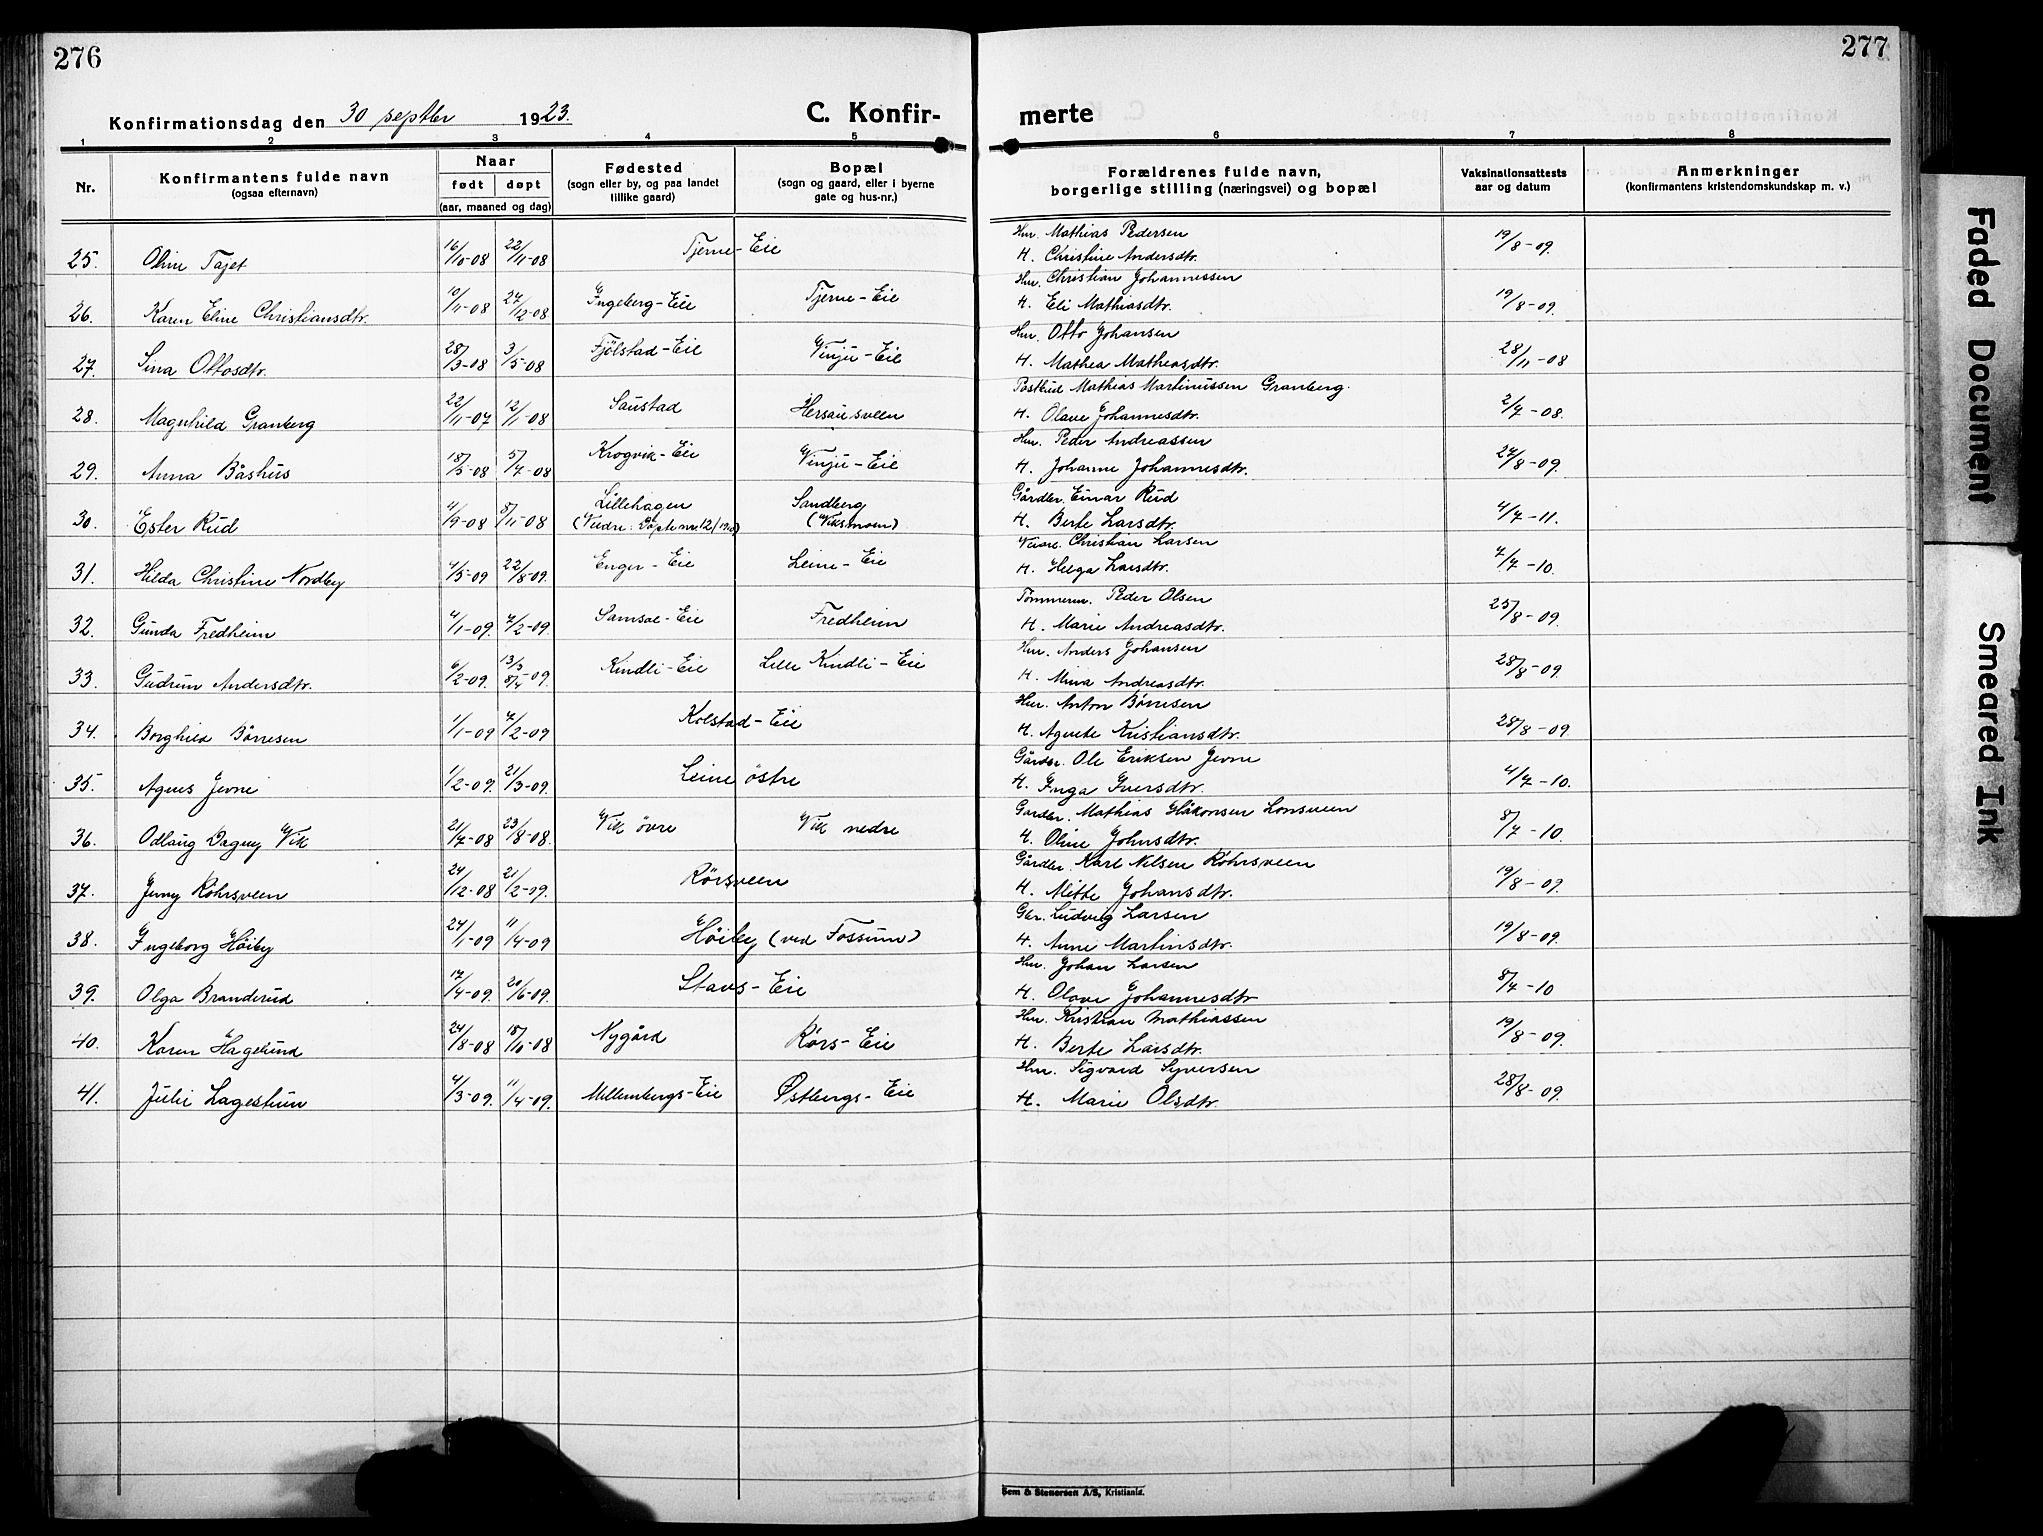 276
277
Konfirmationsdag den 30 septbr 1923.
C. Konfir-
merte
1 2 3 4 5 6 7 8
Nr. Konfirmantens fulde navn (ogsaa efternavn) Naar født døpt (aar, maaned og dag) Fødested (sogn eller by, og paa landet tillike gaard) Bopæl (sogn og gaard, eller i byerne gate og hus-nr.) Forældrenes fulde navn, borgerlige stilling (næringsvei) og bopæl Vaksinationsattests aar og datum Anmerkninger (konfirmantens kristendomskundskap m. v.)
25. Oline Tajet 16/10-08 22/11-08 Tjerne-Eie Hm. Mathias Pedersen 19/8-09.
H. Christine Andersdtr.
26. Karen Eline Christiansdtr. 10/11-08 27/12-08 Yngeberg-Eie Tjerne-Eie Hm. Christian Johannessen 19/8-09.
H. Eli Mathiasdtr.
27. Sina Ottosdtr. 28/3-08 3/5-08 Fjølstad-Eie Vinju-Eie Hm. Otto Johansen 28/11-08
H. Mathea Matheasdtr.
28. Magnhild Granberg 22/11-07 12/1-08 Saustad Hersausveen Postbud Mathias Martinussen Granberg. 2/7-08.
H. Olave Johannesdtr.
29. Anna Båshus 18/5-08 5/7-08 Krogvik-Eie Vinju-Eie Hm. Peder Andreassen 27/8-09.
H. Johanne Johannesdtr.
30. Ester Rud 4/9-08 8/11-08 Lillehagen Sandberg Gårdbr. Einar Rud 4/7-11.
(Viksmoen) H. Berte Larsdtr.
31. Hilda Christine Nordby 4/5-09 22/8-09. Enger-Eie Leine-Eie Christian Larsen 7/7-10.
H. Helga Larsdtr.
32. Gunda Fredheim 4/1-09. 7/2-09. Samsal-Eie Fredheim Tømmerm. Peder Olsen 25/8-09.
H. Marie Andreasdtr.
33. Gudrun Andersdtr. 6/2-09. 13/3 8/4-09. Kindli-Eie Lille Kindli-Eie Hm. Anders Johansen 28/8-09.
H. Mina Andreasdtr.
34. Borghild Børresen 1/1-09 7/2-09 Kolstad-Eie Hm. Anton Børresen 28/8-09.
H. Agnete Kristiansdtr.
35. Agnes Jevne 1/2-09. 21/3-09. Leine østre Gårdbr. Ole Eriksen Jevne 4/7-10.
H. Inga Iversdtr.
36. Odlaug Dagny Vik 21/7-08 23/8-08. Vik øvre Vik nedre Gardbr. Mathias Håkonsen Lonsveen 8/7-10.
H. Oline Johnsdtr.
37. Jenny Røhrsveen 24/12-08 21/2-09. Rørsveen Gårdbr. Karl Nilsen Røhrsveen 19/8-09.
H. Mette Johansdtr.
38. Ingeborg Høiby 24/1-09 11/4-09 Høiby (ved Fossum) Gbr. Ludvig Larsen 19/8-09.
H. Anne Martinsdtr.
39. Olga Branderud 17/4-09. 20/6-09. Stavs-Eie Hm. Johan Larsen 8/7-10
H. Olave Johannesdtr
40. Karen Hagelund 24/8-08 18/10-08 Nygård Rørs-Eie Hm. Kristian Mathiassen 19/8-09.
H. Berte Larsdtr.
41. Julie Lagestuen 4/3-09. 11/4-09. Mellembergs-Eie Østbergs-Eie Hm. Sigvard Syversen 28/8-09.
H. Marie Olsdtr.
Sem & Stenersen A/S, Kristiania.
Faded Document
Smeared Ink